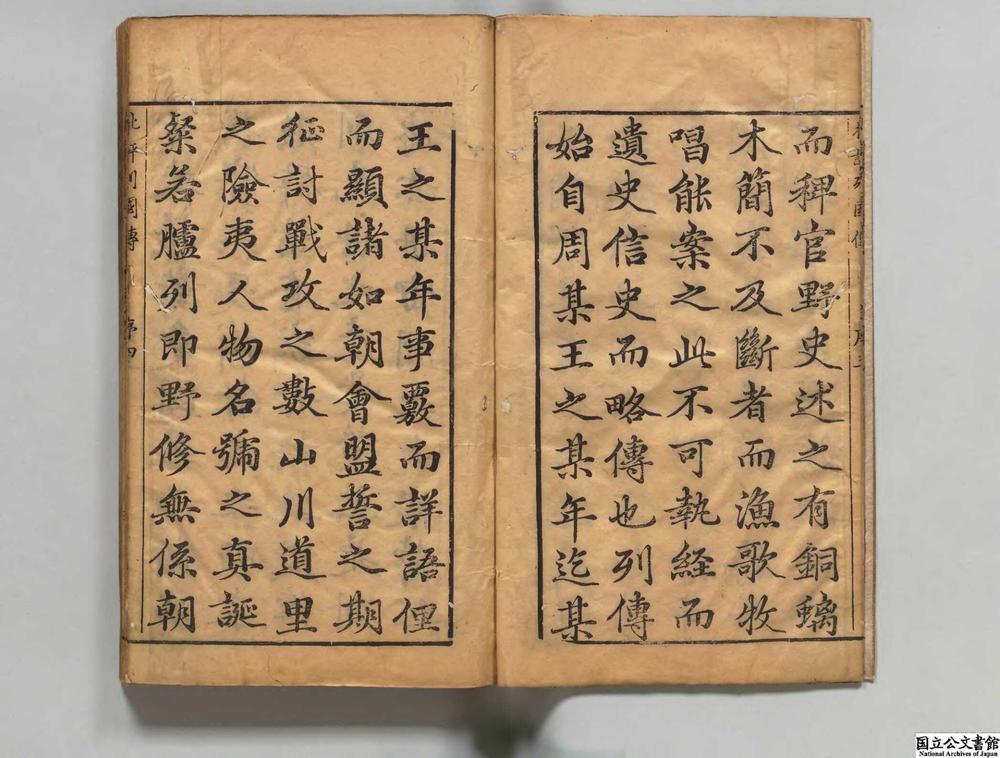 而稗官野史述之有銅螭
木簡不及斷者而漁歌牧
唱能案之此不可執経而
遺史信史而略傳也列傳
始自周某王之某年迄某
王之某年事覈而詳語俚
而顯諸如朝會盟誓之期
征討戰攻之數山川道里
之險夷人物名號之真誕
粲若臚列即野修無係朝
批評列國傳 序四
国立公文書館
National Archives of Japan